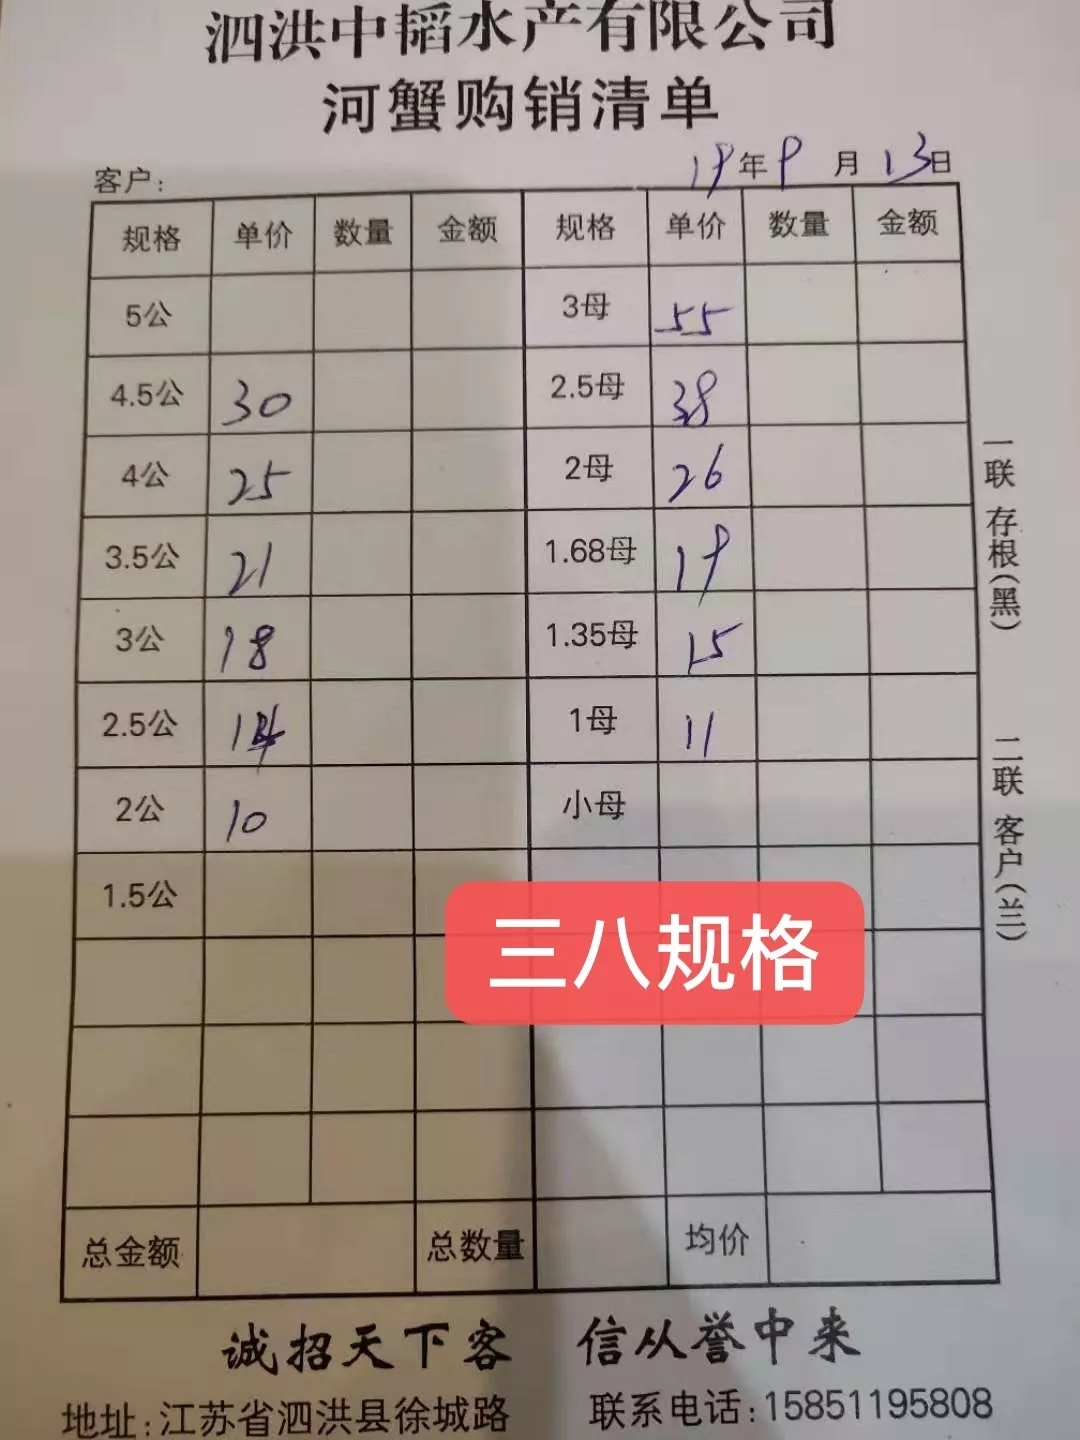 泗洪中韬水产有限公司
河蟹购销清单
客户: 19年9月13日
规格 单价 数量 金额 规格 单价 数量 金额
5公 3母 55
4.5公 30 2.5母 38
4公 25 2母 26
3.5公 21 1.68母 19
3公 18 1.35母 15
2.5公 14 1母 11
2公 10 小母
1.5公
三八规格
总金额 总数量 均价
一联 存根(黑) 二联 客户(兰)
诚招天下客 信从誉中来
地址:江苏省泗洪县徐城路 联系电话:15851195808